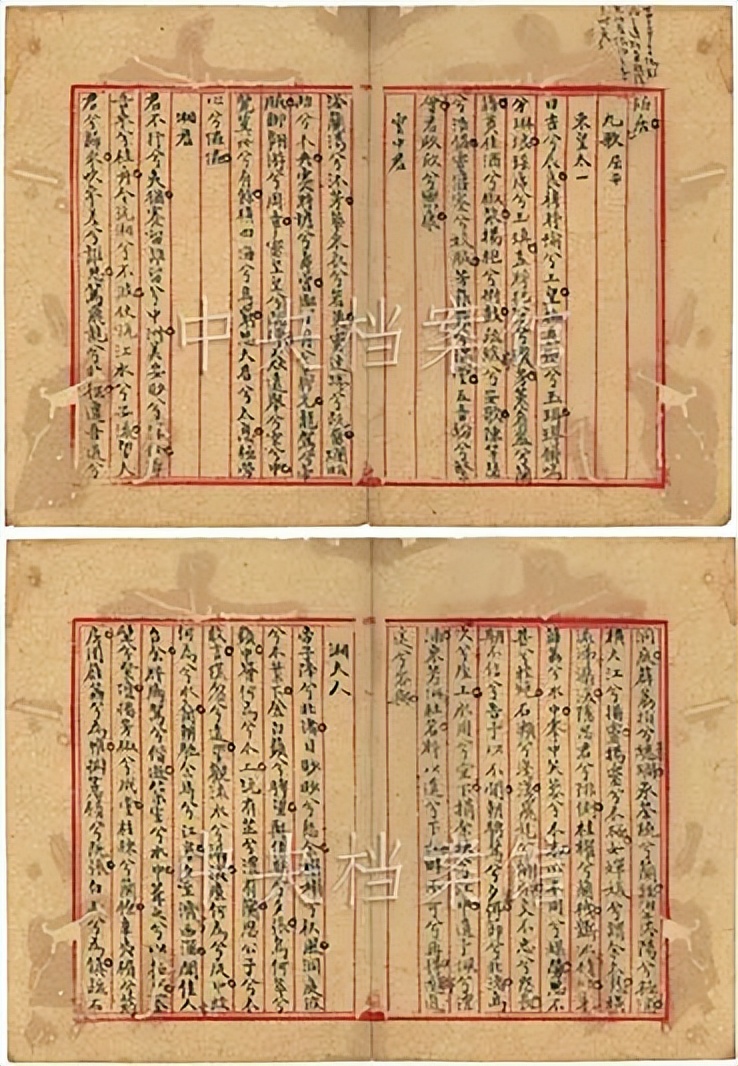 九歌 屈平
東皇太一
日吉兮辰良穆將愉兮上皇撫長劍兮玉珥璆鏘鳴
兮琳琅瑤席兮玉瑱盍將把兮瓊芳蕙肴蒸兮蘭
藉奠桂酒兮椒漿揚枹兮拊鼓疏緩兮安歌陳竽瑟
兮浩倡靈偃蹇兮姣服芳菲菲兮滿堂五音紛兮繁
會君欣欣兮樂康
雲中君
浴蘭湯兮沐芳華采衣兮若英靈連蜷兮既留爛昭
昭兮未央蹇將憺兮壽宮與日月兮齊光龍駕兮帝
服聊翱游兮周章靈皇皇兮既降猋遠舉兮雲中
覽冀州兮有餘橫四海兮焉窮思夫君兮太息極勞
心兮忡忡
湘君
君不行兮夷猶蹇誰留兮中洲美要眇兮宜修沛
吾乘兮桂舟令沅湘兮波使江水兮安流望夫
君兮歸來吹參差兮誰思駕飛龍兮北征邅吾道兮
洞庭薜荔柏兮蕙綢承荃橈兮蘭旌望涔陽兮極浦
橫大江兮揚靈揚靈兮未極女嬋媛兮為余太息橫
流涕潺湲隱思君兮陫側桂櫂兮蘭枻斲冰積雪采
薜荔兮水中搴芙蓉兮木末心不同兮媒勞恩不
甚兮輕絕石瀨兮淺淺飛龍兮翩翩交不忠兮怨長
期不信兮告予以不閒朝騁騖兮夕弭節兮北渚鳥
次兮屋上水周兮堂下捐余玦兮江中遺余佩兮澧
浦采芳洲杜若將以遺兮下女時不可兮再得聊逍
遙兮容與
湘夫人
帝子降兮北渚目眇眇兮愁余嫋嫋兮秋風洞庭波
兮木葉下登白薠兮騁望與佳期兮夕張鳥何萃兮
蘋中罾何為兮木上沅有芷兮澧有蘭思公子兮未
敢言慌忽兮遠望觀流水兮潺湲麋何為兮庭中蛟
何為兮水裔朝馳余馬兮江皋夕濟兮西澨聞佳人
召余將騰駕兮偕逝築室兮水中葺之兮以荷蓋荃
壁兮紫壇播芳椒兮成堂桂棟兮蘭橑辛夷楣兮葯
房罔薜荔兮為帷擗蕙櫋兮既張白玉兮為鎮疏石
中央档案馆
中央档案馆